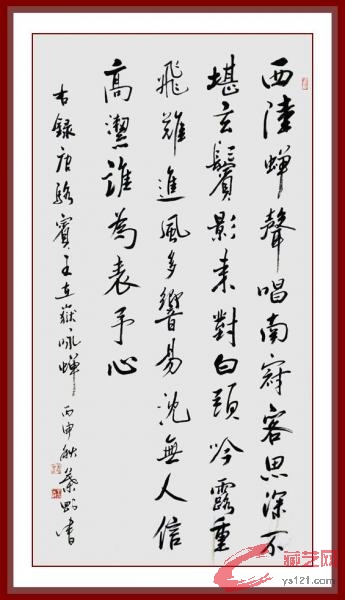 西陸蝉聲唱南冠客思深不
堪玄鬢影来對白頭吟露重
飛難進風多響易沈無人信
高潔誰為表予心
右録唐駱賓王在獄咏蝉 丙申秋 蔡 書
藏艺网
ys121.com